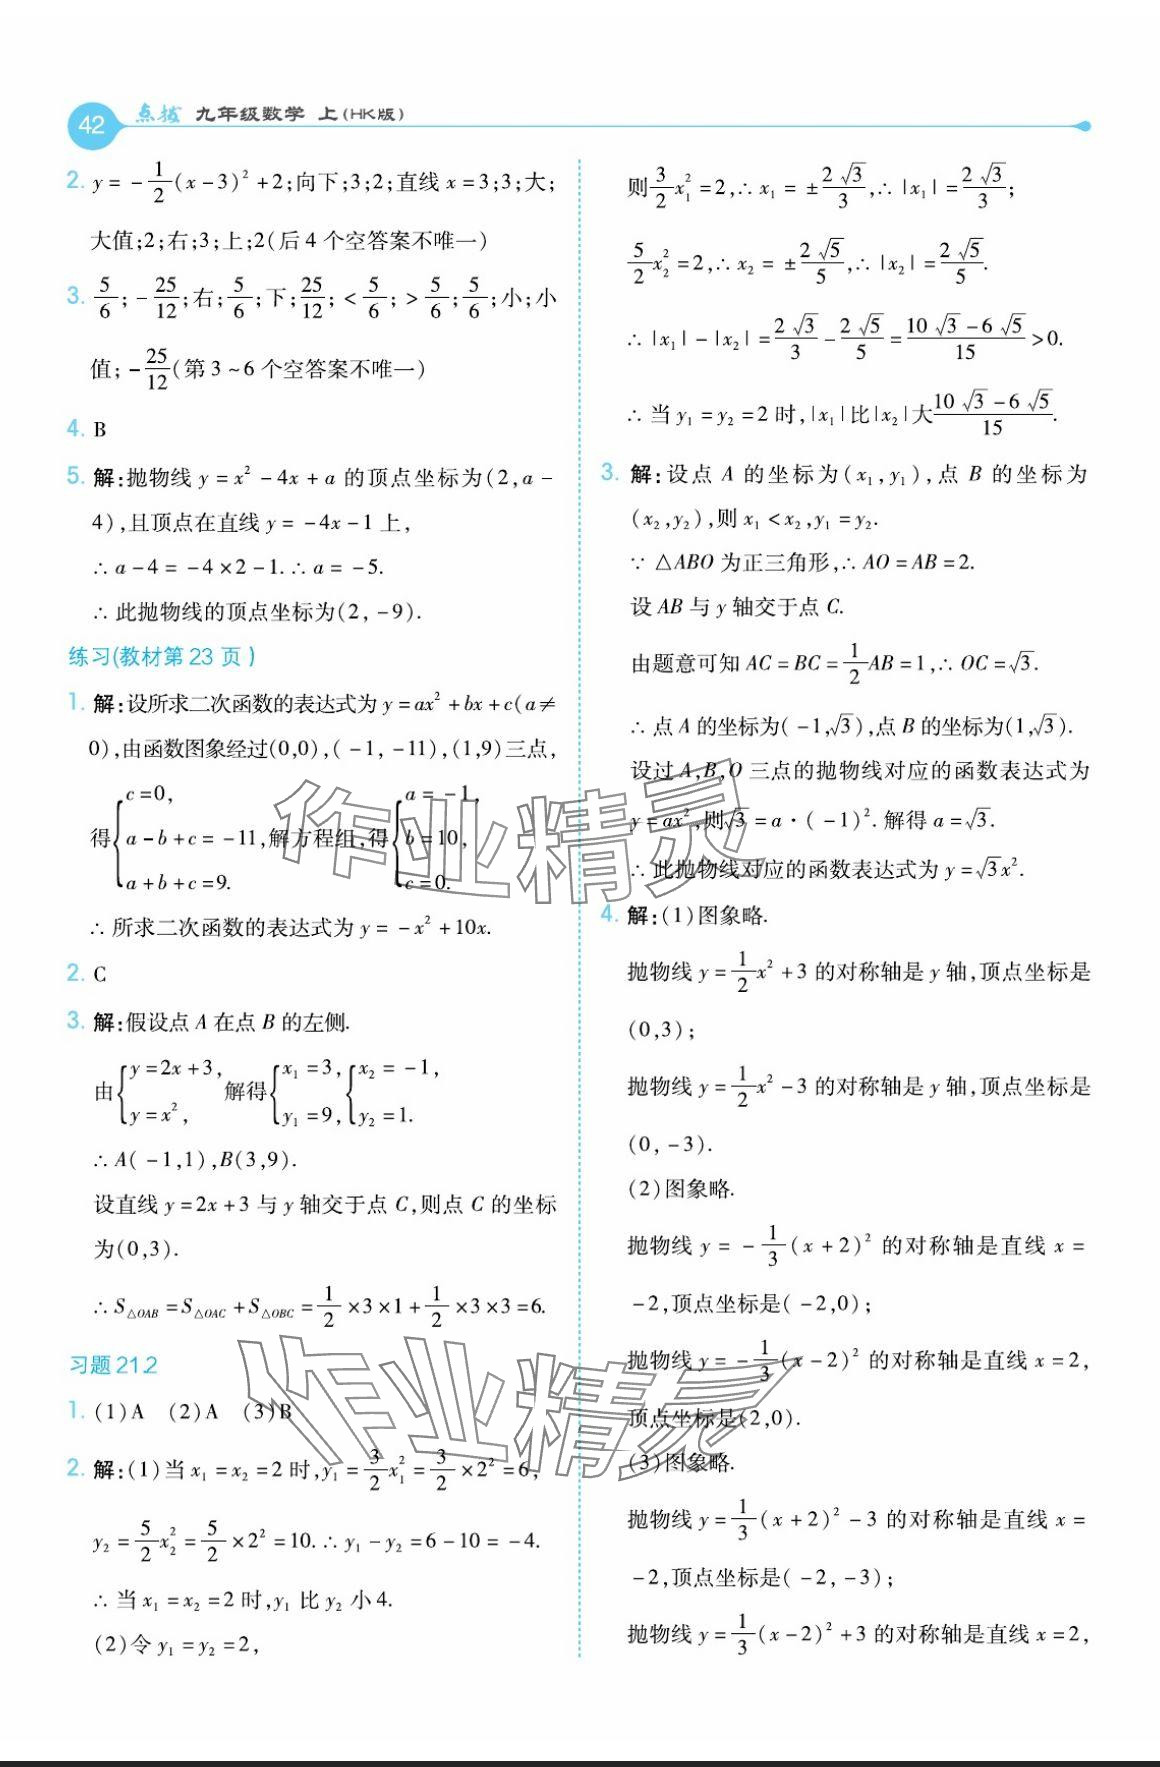 42 点拨 九年级数学 上(HK版)
2. y = -1/2(x-3)² +2;向下;3;2;直线 x=3;3;大;
大值;2;右;3;上;2(后 4 个空答案不唯一)
3. 5/6; -25/12;右;5/6;下;25/12; < 5/6; > 5/6;5/6;小;小
值; -25/12(第 3 ~ 6 个空答案不唯一)
4. B
5. 解:抛物线 y = x² - 4x + a 的顶点坐标为(2,a -
4),且顶点在直线 y = -4x - 1 上,
∴ a - 4 = -4 × 2 - 1. ∴ a = -5.
∴ 此抛物线的顶点坐标为(2, -9).
练习(教材第 23 页)
1. 解:设所求二次函数的表达式为 y = ax² + bx + c(a ≠
0),由函数图象经过(0,0),( -1, -11),(1,9)三点,
得{c = 0, a - b + c = -11, a + b + c = 9. 解方程组,得{a = -1, b = 10, c = 0.
∴ 所求二次函数的表达式为 y = -x² + 10x.
2. C
3. 解:假设点 A 在点 B 的左侧.
由{y = 2x + 3, y = x², 解得{x₁ = 3, y₁ = 9, {x₂ = -1, y₂ = 1.
∴ A( -1,1),B(3,9).
设直线 y = 2x + 3 与 y 轴交于点 C,则点 C 的坐标
为(0,3).
∴ S△OAB = S△OAC + S△OBC = 1/2 × 3 × 1 + 1/2 × 3 × 3 = 6.
习题 21.2
1. (1)A (2)A (3)B
2. 解:(1)当 x₁ = x₂ = 2 时,y₁ = 3/2x₁² = 3/2 × 2² = 6,
y₂ = 5/2x₂² = 5/2 × 2² = 10. ∴ y₁ - y₂ = 6 - 10 = -4.
∴ 当 x₁ = x₂ = 2 时,y₁ 比 y₂ 小 4.
(2)令 y₁ = y₂ = 2,
则3/2x₁² = 2,∴ x₁ = ±2√3/3,∴ |x₁| = 2√3/3;
5/2x₂² = 2,∴ x₂ = ±2√5/5,∴ |x₂| = 2√5/5.
∴ |x₁| - |x₂| = 2√3/3 - 2√5/5 = (10√3 - 6√5)/15 > 0.
∴ 当 y₁ = y₂ = 2 时,|x₁|比|x₂|大(10√3 - 6√5)/15.
3. 解:设点 A 的坐标为(x₁,y₁),点 B 的坐标为
(x₂,y₂),则 x₁ < x₂,y₁ = y₂.
∵ △ABO 为正三角形,∴ AO = AB = 2.
设 AB 与 y 轴交于点 C.
由题意可知 AC = BC = 1/2AB = 1,∴ OC = √3.
∴ 点 A 的坐标为( -1,√3),点 B 的坐标为(1,√3).
设过 A,B,O 三点的抛物线对应的函数表达式为
y = ax²,则√3 = a · ( -1)². 解得 a = √3.
∴ 此抛物线对应的函数表达式为 y = √3x².
4. 解:(1)图象略.
抛物线 y = 1/2x² + 3 的对称轴是 y 轴,顶点坐标是
(0,3);
抛物线 y = 1/2x² - 3 的对称轴是 y 轴,顶点坐标是
(0, -3).
(2)图象略.
抛物线 y = -1/3(x + 2)² 的对称轴是直线 x =
-2,顶点坐标是( -2,0);
抛物线 y = -1/3(x - 2)² 的对称轴是直线 x = 2,
顶点坐标是(2,0).
(3)图象略.
抛物线 y = 1/3(x + 2)² - 3 的对称轴是直线 x =
-2,顶点坐标是( -2, -3);
抛物线 y = 1/3(x - 2)² + 3 的对称轴是直线 x = 2,
作业精灵
作业精灵